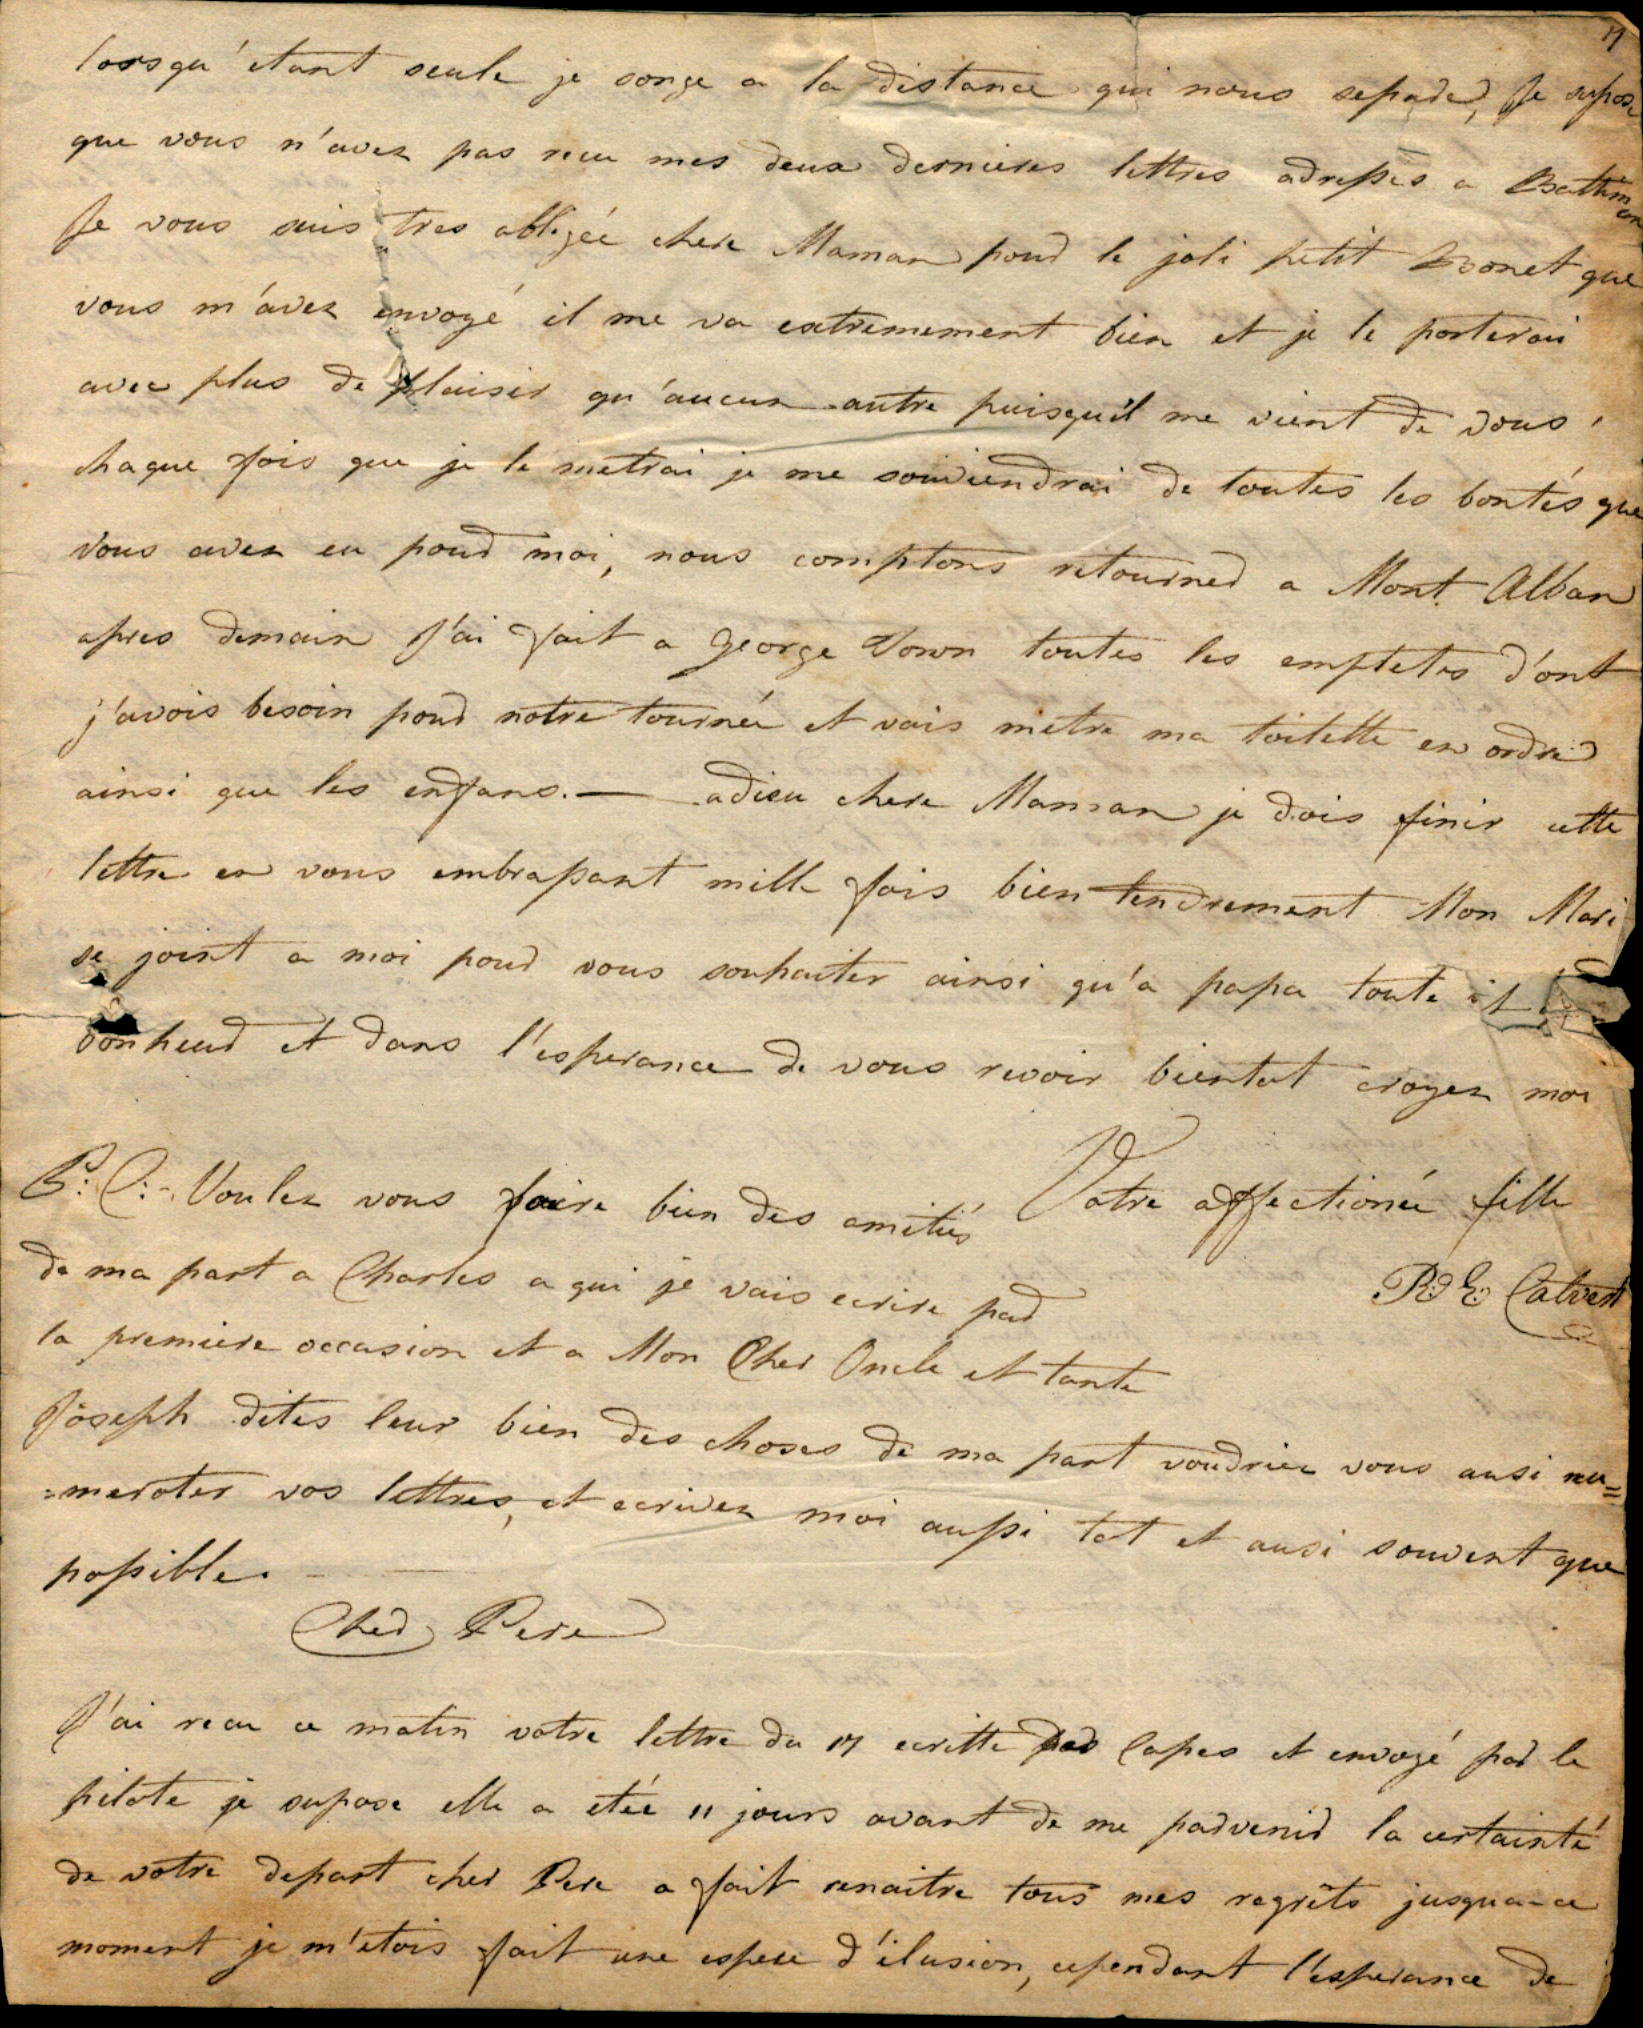 lorsqu'etant seule je songe a la distance qui nous separe, Je supose
que vous n'avez pas recu mes deux dernieres lettres adressés a
Je vous suis tres obligée chere Maman pour le joli petit Bonet que
vous m'avez envoyé il me va extremement bien et je le porterai
avec plus de plaisir qu'aucun autre puisqu'il me vient de vous,
chaque fois que je le metrai je me souviendrai de toutes les bontés que
vous avez eu pour moi, nous comptons retourner a Mont Alban
apres demain J'ai fait a George Town toutes les empletes d'ont
j'avois besoin pour notre tournée et vais metre ma toilette en ordre
ainsi que les enfans. — adieu chere Maman je dois finir cette
lettre en vous embrassant mille fois bien tendrement Mon Mari
se joint a moi pour vous souhaiter ainsi qu'a papa toute
bonheur et dans l'esperance de vous revoir bientot croyez moi
Votre affectionée fille
R: E: Calvert
P: S: - Voulez vous faire bien des amitiés
de ma part a Charles a qui je vais ecrire par
la premiere occasion et a Mon Cher Oncle et tante
Joseph dites leur bien des choses de ma part voudriez vous ausi nu=
=meroter vos lettres, et ecrivez moi aussi tot et ausi souvent que
possible. —
Cher Pere
J'ai recu ce matin votre lettre du 17 ecritte des Capes et envoyé par le
pilote je supose elle a etée 11 jours avant de me parvenir la certainté
de votre depart cher Pere a fait renaitre tous mes regrèts jusqua-ce
moment je m'etois fait une espece d'ilusion, cependant l'esperance de